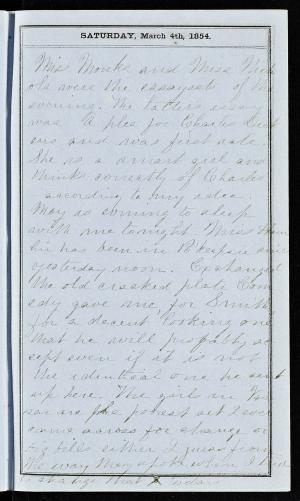 SATURDAY, March 4th, 1854.
Miss Monks and Miss Nich
ols were the essayests of the
evening. The latters essay
was A plea for Charles Dick
ens and was first rate.
She is a smart girl and
thinks correctly of Charles
according to my idea.
May is coming to sleep
with me tonight. Miss
has been in since
yesterday noon. Exchanged
the old cracked plate Com
edy gave me for Smith
for a decent looking one
that he will probably ac
cept even if it is not
the identical one he sent
up here. The girls in Vas
sar are the poorest set I ever
came across for change or
bills either I guess from
the way May spoke when I tried
to change that today